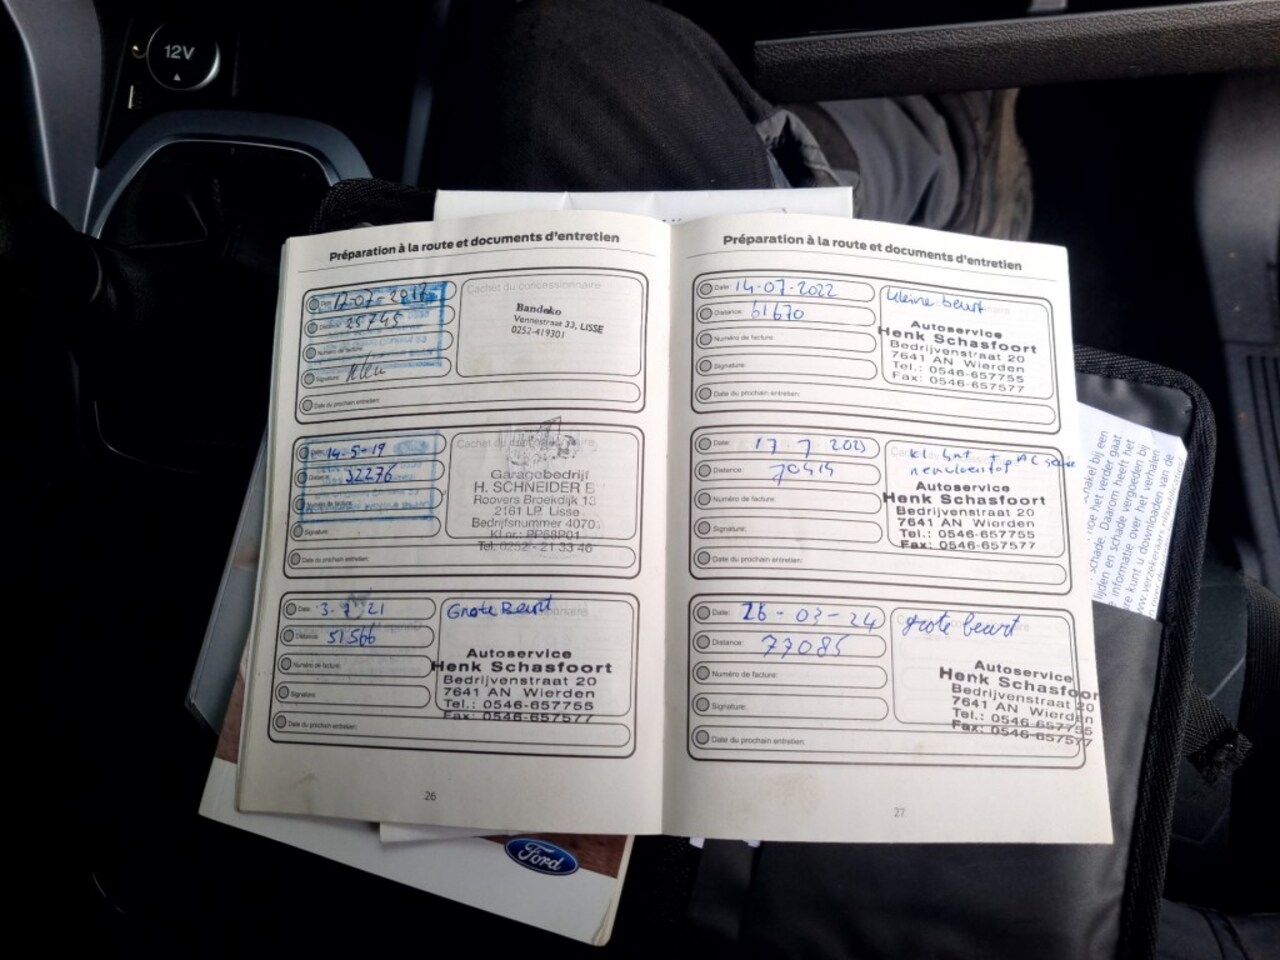 12V
Préparation à la route et documents d'entretien
Date: 12-07-2017
Distance: 25745
Numéro de facture:
Signature:
Date du prochain entretien:
Cachet du concessionnaire
Bandeko
Vennestraat 33, LISSE
0252-419301
Date: 14-5-19
Distance: 32276
Numéro de facture:
Signature:
Date du prochain entretien:
Cachet du concessionnaire
Garagebedrijf
H. SCHNEIDER B
Roovers Broekdijk 13
2161 LP Lisse
Bedrijfsnummer 4070
Kl.nr.: PP68P01
Tel. 0252 - 21 33 46
Date: 3-7-21
Distance: 51566
Numéro de facture:
Signature:
Date du prochain entretien:
Grote Beurt
Autoservice
Henk Schasfoort
Bedrijvenstraat 20
7641 AN Wierden
Tel.: 0546-657755
Fax: 0546-657577
26
Préparation à la route et documents d'entretien
Date: 14-07-2022
Distance: 61670
Numéro de facture:
Signature:
Date du prochain entretien:
kleine beurt
Autoservice
Henk Schasfoort
Bedrijvenstraat 20
7641 AN Wierden
Tel.: 0546-657755
Fax: 0546-657577
Date: 17 7 2023
Distance: 70419
Numéro de facture:
Signature:
Date du prochain entretien:
Autoservice
Henk Schasfoort
Bedrijvenstraat 20
7641 AN Wierden
Tel.: 0546-657755
Fax: 0546-657577
Date: 26-03-24
Distance: 77085
Numéro de facture:
Signature:
Date du prochain entretien:
grote beurt
Autoservice
Henk Schasfoor
Bedrijvenstraat 20
7641 AN Wierden
Tel.: 0546-657755
Fax: 0546-657577
27
Ford
hakel bij een
hoe het verder gaat
schade. Daarom heeft het
lijden en schade vergoeden bij
informatie over het verhalen
are kunt u downloaden van de